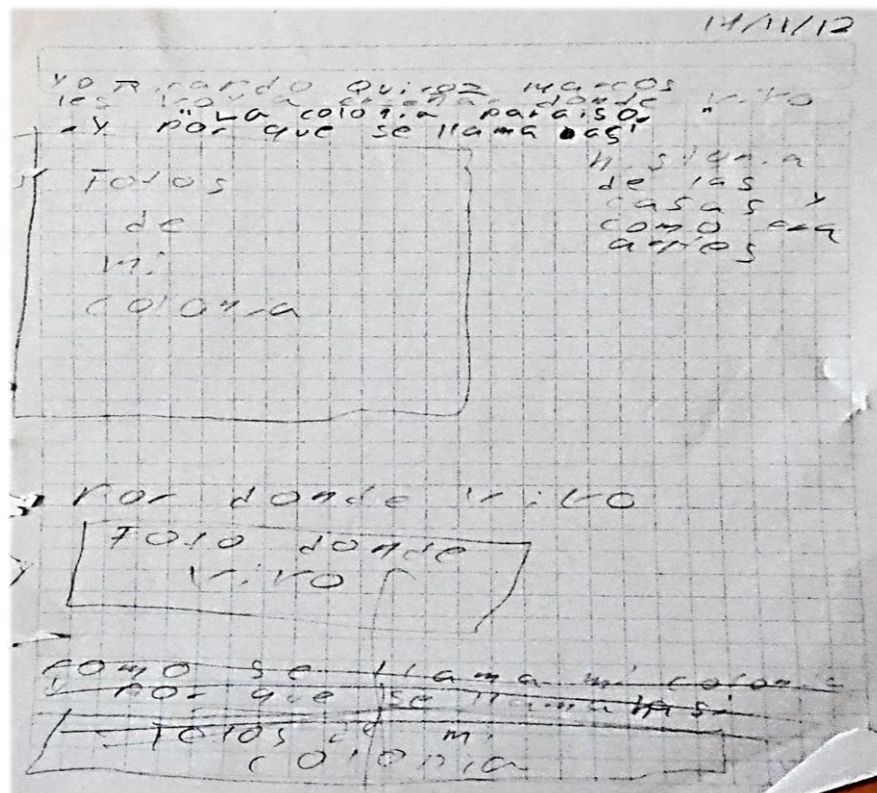 14/11/12
yo Ricardo Quiroz Marcos
les voy a enseñar donde vivo
"La colonia paraiso"
- y por que se llama asi
Fotos
de
mi
colonia
historia
de las
casas y
como era
antes
Por donde vivo
Foto donde
vivo
como se llama mi colonia
y por que se llama
Fotos de mi
colonia